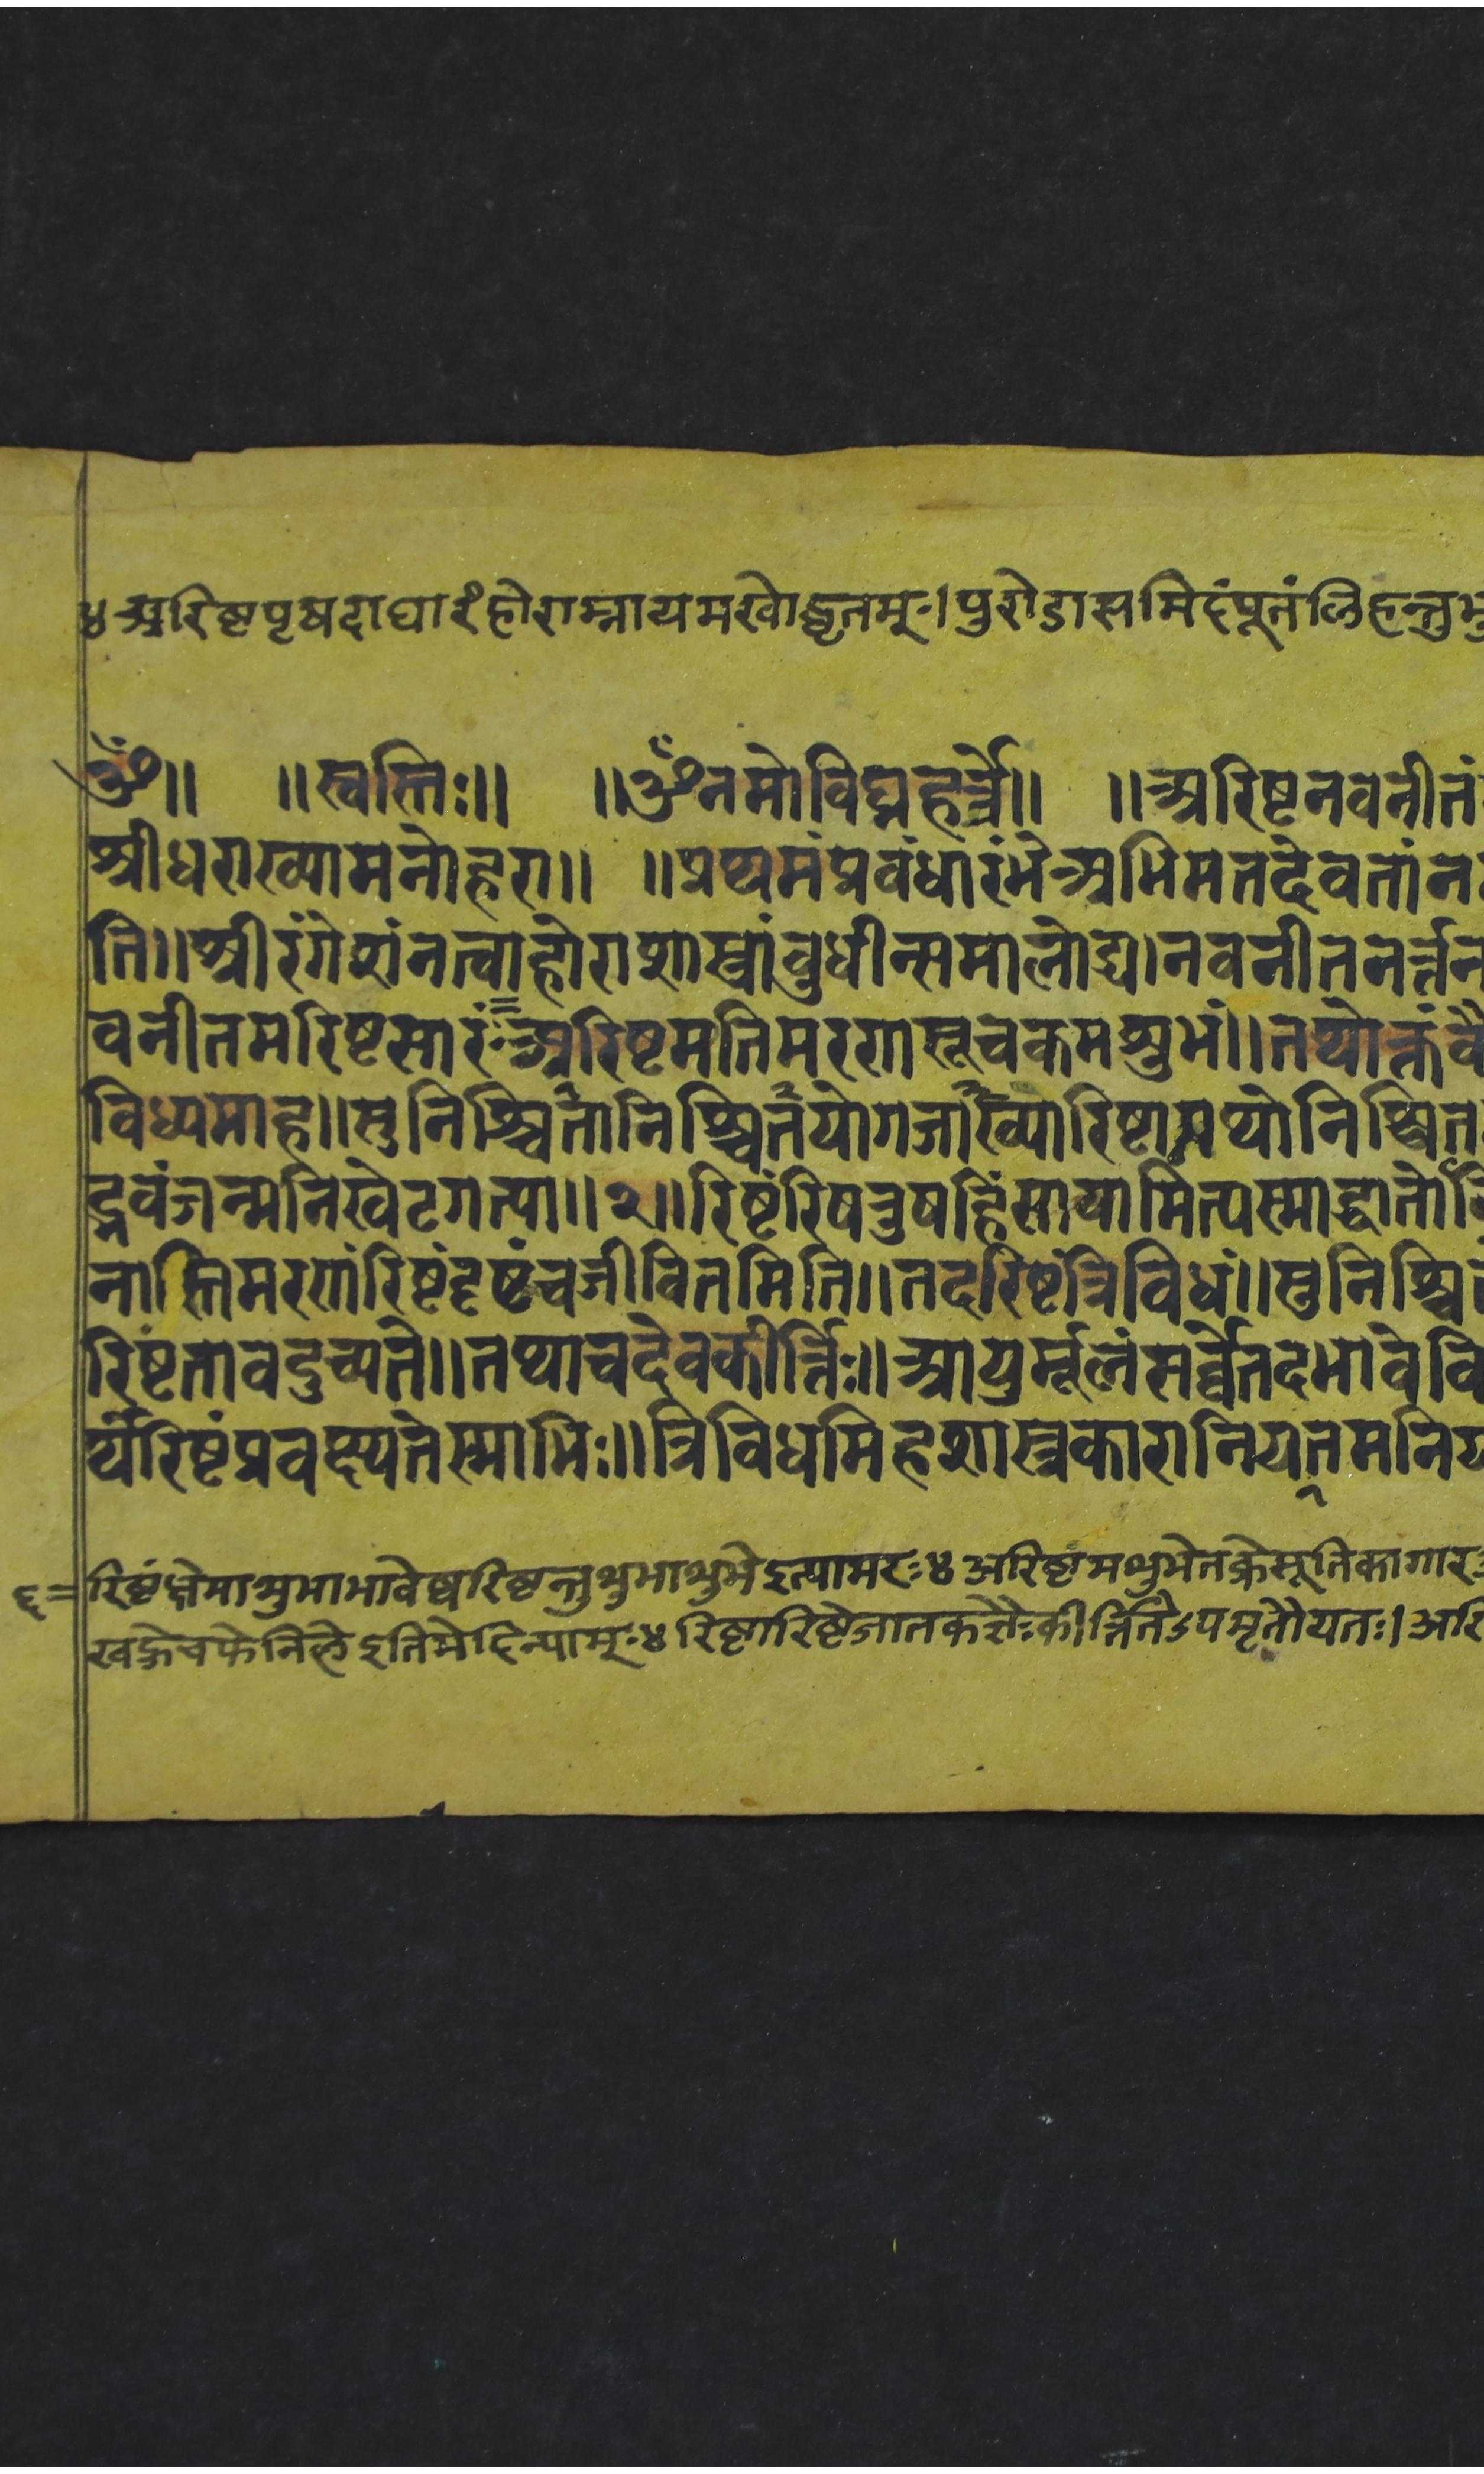 ४ अरिष्टपृषदाघारंहोराम्नायमखोद्धृतम्ः।पुरोडासमिदंपूतंलिहन्तुभु
ॐ॥ ॥स्वस्तिः॥ ॥ॐनमोविघ्नहर्त्रे॥ ॥अरिष्टनवनीतं
श्रीधराख्यामनोहरा॥ ॥प्रथमंप्रवंधारंभेअभिमतदेवतांन
ति॥श्रीरंगेशंनत्वाहोराशास्त्रांवुधीन्समालोद्य।नवनीतनर्त्तन
वनीतमरिष्टसारंःअरिष्टमतिमरणसूचकमशुभं॥तथोक्तंवै
विध्यमाह॥सुनिश्चितानिश्चितयोगजाख्यारिष्टाम्रथोनिश्चित
द्रुवंजन्मनिखेटगत्या॥२॥रिष्टंरिषवुषहिंसायामित्यस्माद्धातो
नास्तिमरणंरिष्टंदृष्टंचजीवितमिति॥तदरिष्टंत्रिविधं॥सुनिश्चि
रिष्टंतावदुच्यते॥तथाचदेवकीर्त्तिः॥आयुर्मूलंसर्व्वंतदभावेवि
र्थेरिष्टंप्रवक्ष्यतेस्माभिः॥त्रिविधमिहशास्त्रकारानियतमनिय
६= रिष्टंक्षेमाशुभाभावेष्वरिष्टन्तुशुभाशुभेइत्यामरः४ अरिष्टमशुभेतक्रेसूतिकागार
खङ्केचफेनिलेइतिमेदिन्याम्ः४ रिष्टारिष्टेजातकज्ञैःकीर्त्तितेऽपमृतौयतः।अरि